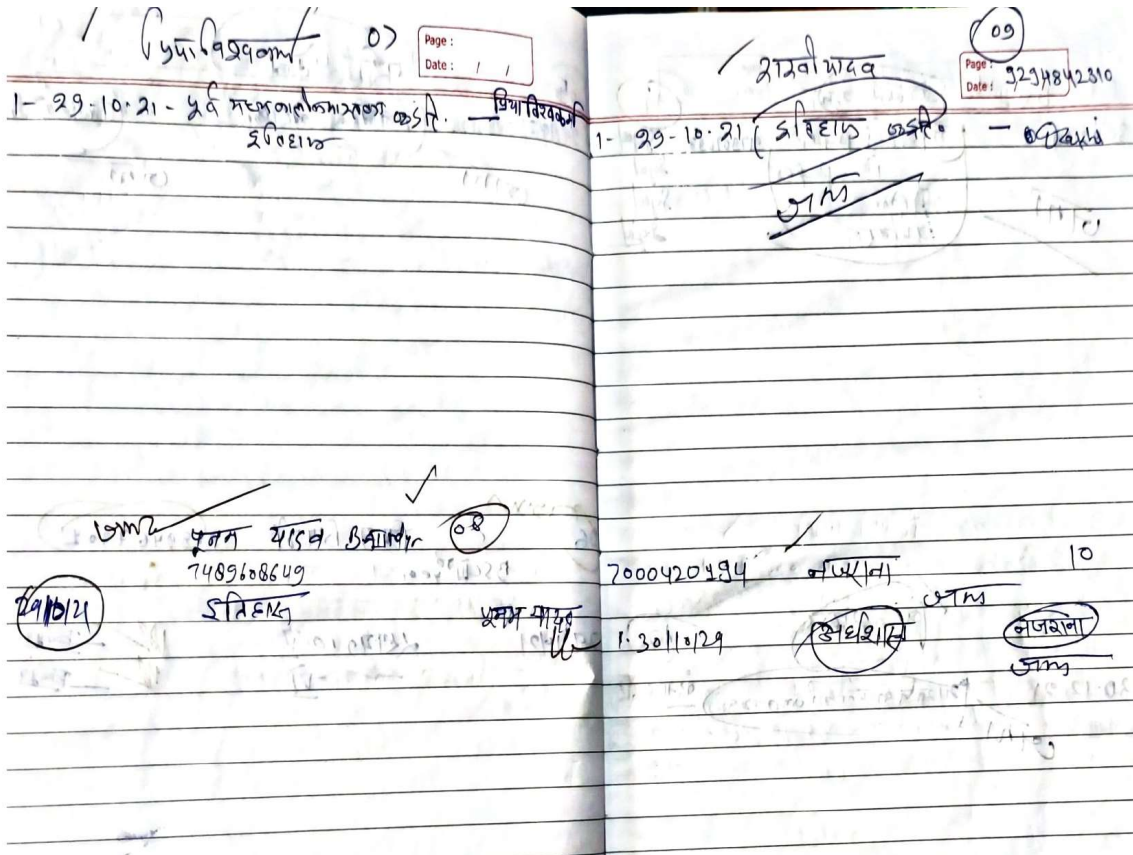 प्रिया विश्वकर्मा 07
Page :
Date : / /
1- 29-10-21 - पूर्व मध्यकालीन भारत का प्रिया विश्वकर्मा
इतिहास
जमा पूनम यादव 08
7489608649
29/10/21 इतिहास पूनम यादव
राखी यादव 09
Page :
Date :
9294842310
1- 29-10-21 इतिहास - Rakhi
जमा
7000420194 नजराना 10
जमा
1. 30/10/29 अर्थशास्त्र नजराना
जमा